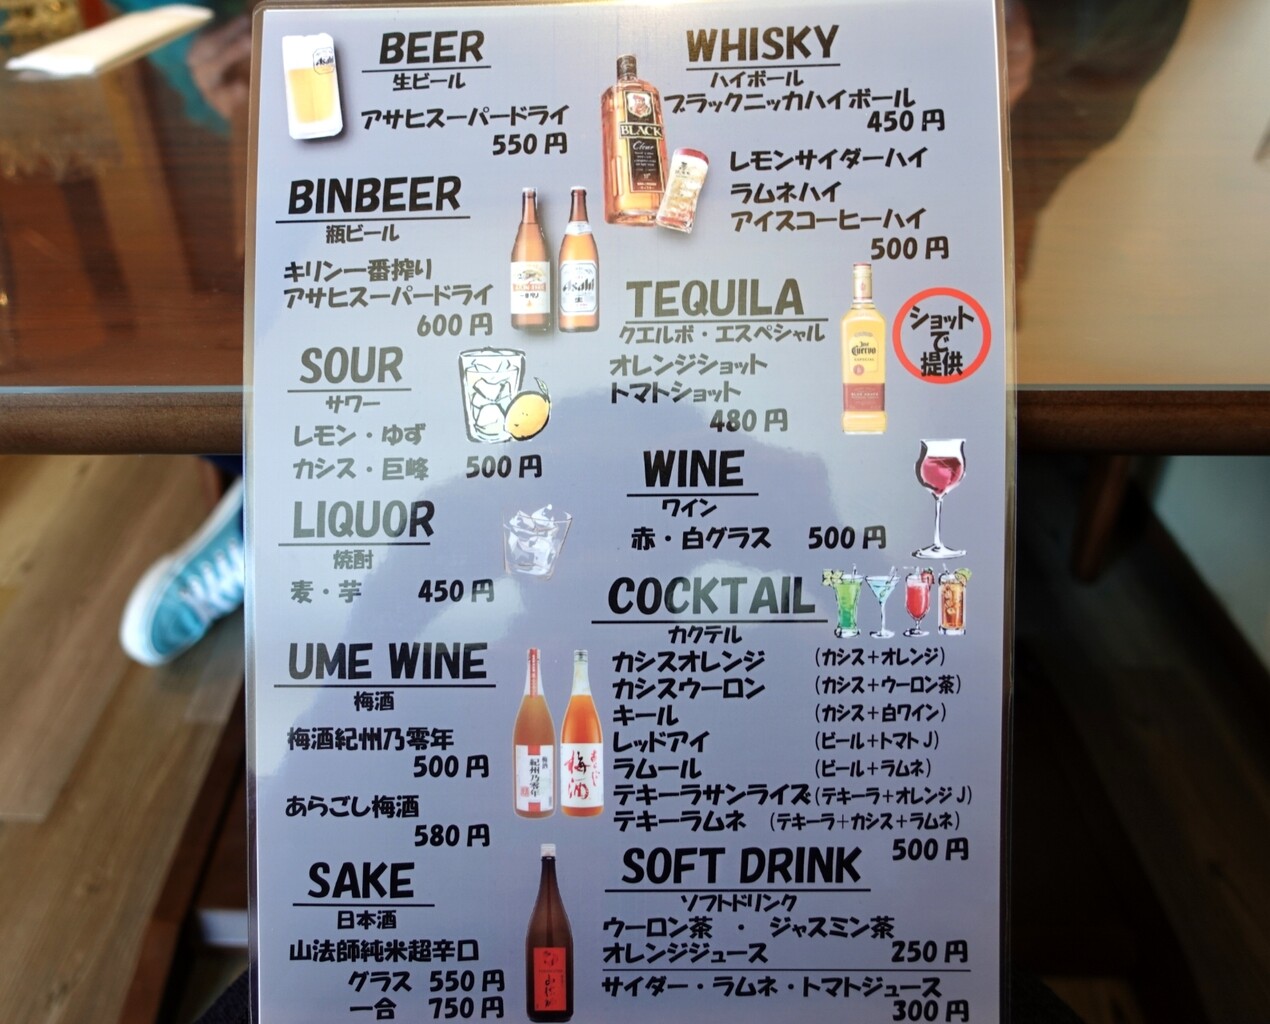 BEER
生ビール
アサヒスーパードライ
550 円
BINBEER
瓶ビール
キリン一番搾り
アサヒスーパードライ
600 円
SOUR
サワー
レモン・ゆず
カシス・巨峰 500 円
LIQUOR
焼酎
麦・芋 450 円
UME WINE
梅酒
梅酒紀州乃零年
500 円
あらごし梅酒
580 円
SAKE
日本酒
山法師純米超辛口
グラス 550 円
一合 750 円
WHISKY
ハイボール
ブラックニッカハイボール
450 円
レモンサイダーハイ
ラムネハイ
アイスコーヒーハイ
500 円
BLACK
Clear
TEQUILA
クエルボ・エスペシャル
オレンジショット
トマトショット
480 円
ショット
で
提供
WINE
ワイン
赤・白グラス 500 円
COCKTAIL
カクテル
カシスオレンジ (カシス＋オレンジ)
カシスウーロン (カシス＋ウーロン茶)
キール (カシス＋白ワイン)
レッドアイ (ビール＋トマトJ)
ラムール (ビール＋ラムネ)
テキーラサンライズ (テキーラ＋オレンジJ)
テキーラムネ (テキーラ＋カシス＋ラムネ)
500 円
SOFT DRINK
ソフトドリンク
ウーロン茶 ・ ジャスミン茶
オレンジジュース 250 円
サイダー・ラムネ・トマトジュース
300 円
Asahi
梅酒
紀州乃零年
梅酒